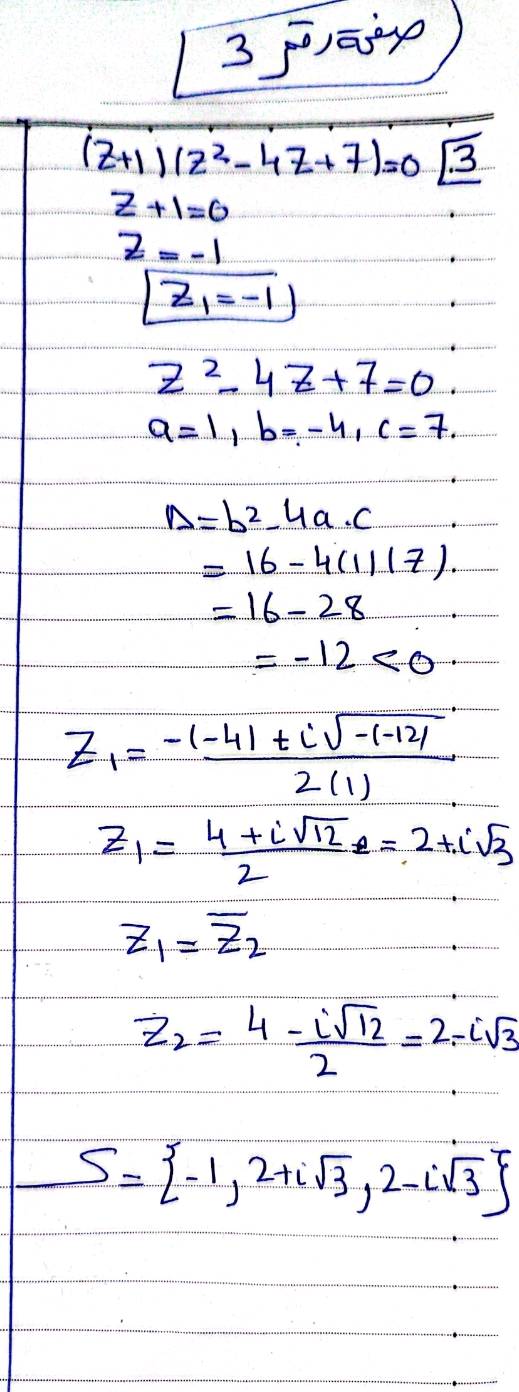 صفحة رقم 3
(z+1)(z²-4z+7)=0 3.
z+1=0
z=-1
z₁=-1
z²-4z+7=0
a=1, b=-4, c=7.
Δ=b²-4a.c
=16-4(1)(7).
=16-28
=-12<0
z₁=(-(-4)+i√(-(-12)))/(2(1))
z₁=(4+i√12)/2 = 2+i√3
z₁=z̅₂
z₂=(4-i√12)/2=2-i√3
S={-1, 2+i√3, 2-i√3}